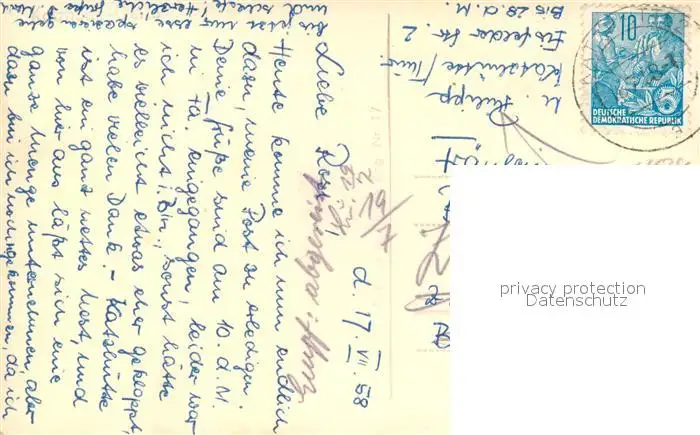 d. 17. VII. 58
Liebe Rosi!
Heute komme ich nun endlich
dazu, meine Post zu erledigen.
Deine Grüße sind am 10. d. M.
in Fa. eingegangen, leider war
ich nicht i. Bln., sonst hätte
es vielleicht etwas eher geklappt,
habe vielen Dank. - Katzhütte
ist ein ganz nettes Nest, und
von hier aus läßt sich eine
ganze Menge unternehmen, aber
dazu bin ich noch gekommen, da ich
bis jetzt nur esse, spazieren gehe
und
Herzliche Grüße
19/7
U. Philipp
Katzhütte / Thür.
Str. 2
Bis 28. d. M.
10
5
DEUTSCHE
DEMOKRATISCHE REPUBLIK
privacy protection
Datenschutz